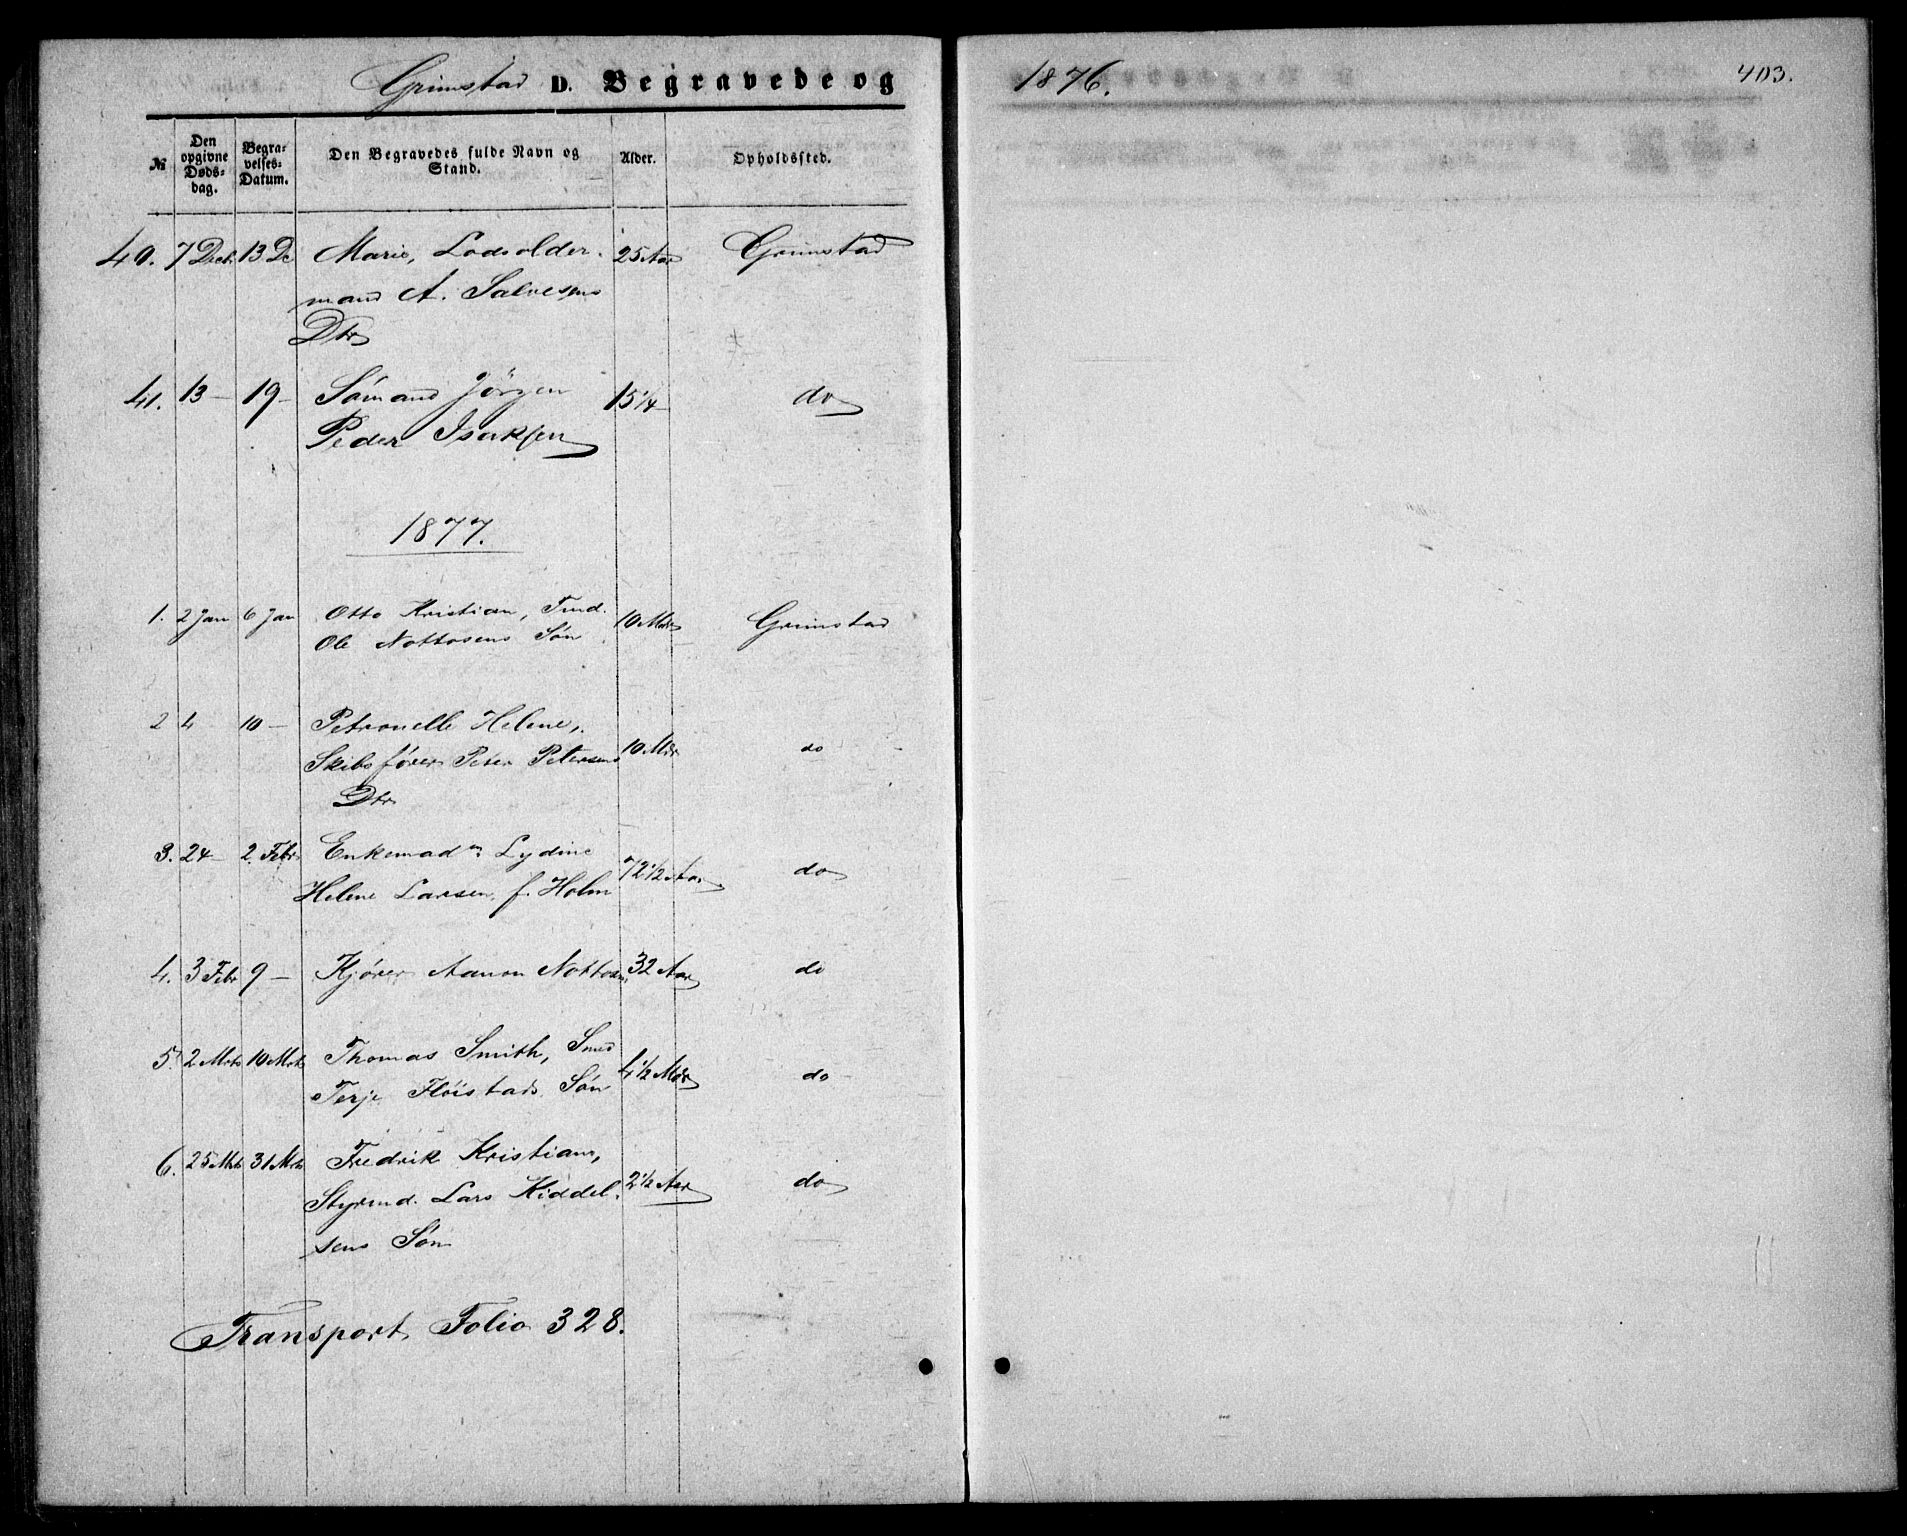 Grimstad D. Begravede og
1876.
403.
№ Den opgivne Døds-dag. Begra-velses-Datum. Den Begravedes fulde Navn og Stand. Alder. Opholdssted.
40. 7 Dec. 13 De Marie, Lodsolder- 25 Aar Grimstad
mand A. Salvesens
Dtr
41. 13 – 19 – Sømand Jörgen 15 1/4 do
Peder Isaksen
1877.
1. 2 Jan 6 Jan Otto Kristian, Tmd. 10 Mdr Grimstad
Ole Nottosens Søn
2 4 10 – Petronelle Helene,
Skibsfører Peter Petersens 10 Mdr do
Dtr
3. 24 – 2. Febr Enkemadm Lydine
Helene Larsen, f. Holm 72 1/2 Aar do
4. 3 Febr 9 – Kjører Aanon Nottosen 32 Aar do
5. 2 Mrts 10 Mrts Thomas Smith, Smed
Terje Flöistads Søn 4 1/2 Mdr do
6. 25 Mrts 31 Mrts Fredrik Kristian,
Styrmd. Lars Kiddel- 2 1/2 Aar do
sens Søn
Transport Folio 328.